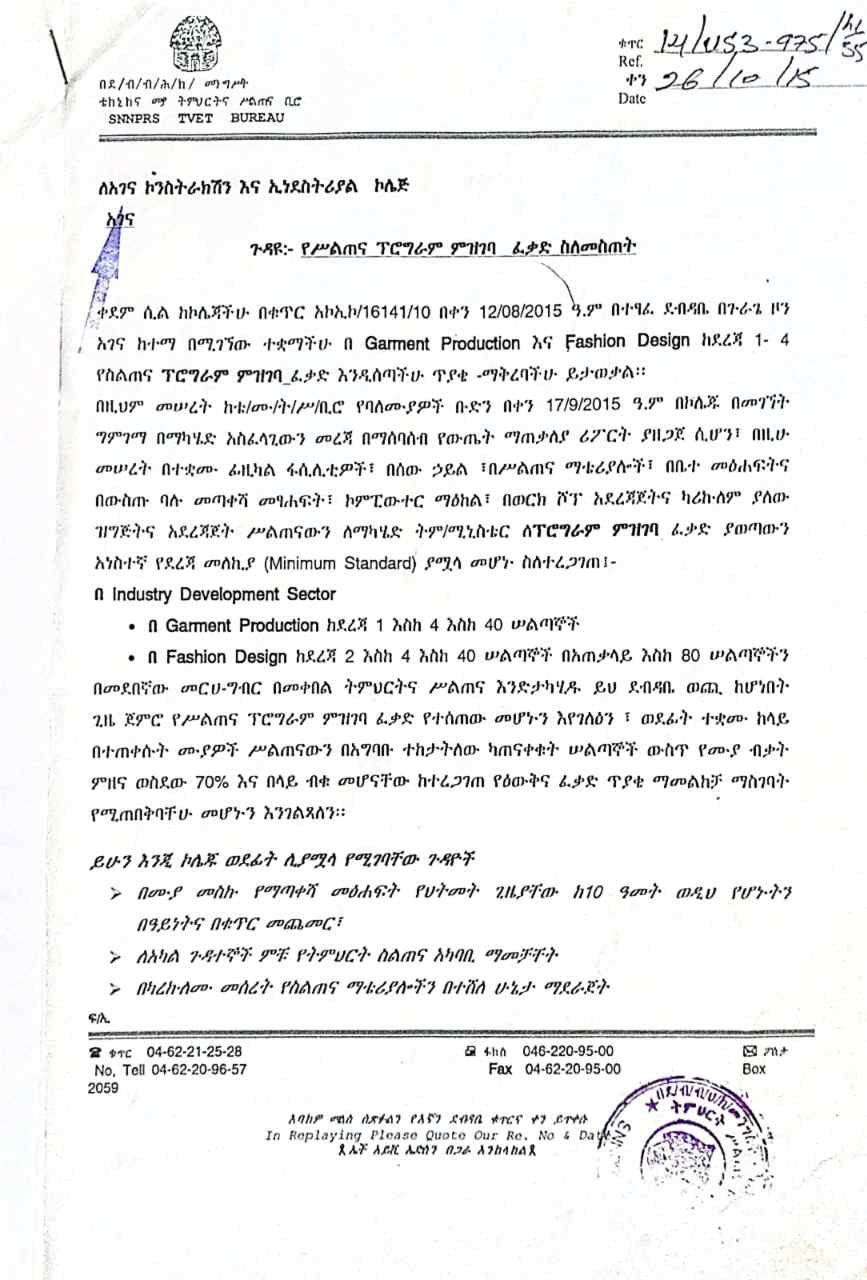 ቁጥር 14/
Ref.
ቀን 26/10/15
Date
በደ/ብ/ብ/ሕ/ክ/ መንግሥት
ቴክኒክና ሙያ ትምህርትና ሥልጠና ቢሮ
SNNPRS TVET BUREAU
ለአገና ኮንስትራክሽን እና ኢነደስትሪያል ኮሌጅ
አገና
ጉዳዩ:- የሥልጠና ፕሮግራም ምዝገባ ፈቃድ ስለመስጠት
ቀደም ሲል ከኮሌጃችሁ በቁጥር አኮኢኮ/16141/10 በቀን 12/08/2015 ዓ.ም በተፃፈ ደብዳቤ በጉራጌ ዞን
አገና ከተማ በሚገኘው ተቋማችሁ በ Garment Production እና Fashion Design ከደረጃ 1- 4
የስልጠና ፕሮግራም ምዝገባ ፈቃድ እንዲሰጣችሁ ጥያቄ ማቅረባችሁ ይታወቃል።
በዚህም መሠረት ከቴ/ሙ/ት/ሥ/ቢሮ የባለሙያዎች ቡድን በቀን 17/9/2015 ዓ.ም በኮሌጁ በመገኘት
ግምገማ በማካሄድ አስፈላጊውን መረጃ በማሰባሰብ የውጤት ማጠቃለያ ሪፖርት ያዘጋጀ ሲሆን፣ በዚሁ
መሠረት በተቋሙ ፊዚካል ፋሲሊቲዎች፣ በሰው ኃይል ፣በሥልጠና ማቴሪያሎች፣ በቤተ መፅሐፍትና
በውስጡ ባሉ መጣቀሻ መፃሐፍት፣ ኮምፒውተር ማዕከል፣ በወርክ ሾፕ አደረጃጀትና ካሪኩለም ያለው
ዝግጅትና አደረጃጀት ሥልጠናውን ለማካሄድ ትም/ሚኒስቴር ለፕሮግራም ምዝገባ ፈቃድ ያወጣውን
አነስተኛ የደረጃ መለኪያ (Minimum Standard) ያሟላ መሆኑ ስለተረጋገጠ፤-
በ Industry Development Sector
• በ Garment Production ከደረጃ 1 እስከ 4 እስከ 40 ሠልጣኞች
• በ Fashion Design ከደረጃ 2 እስከ 4 እስከ 40 ሠልጣኞች በአጠቃላይ እስከ 80 ሠልጣኞችን
በመደበኛው መርሀ-ግብር በመቀበል ትምህርትና ሥልጠና እንድታካሂዱ ይህ ደብዳቤ ወጪ ከሆነበት
ጊዜ ጀምሮ የሥልጠና ፕሮግራም ምዝገባ ፈቃድ የተሰጠው መሆኑን እየገለፅን ፣ ወደፊት ተቋሙ ከላይ
በተጠቀሱት ሙያዎች ሥልጠናውን በአግባቡ ተከታትለው ካጠናቀቁት ሠልጣኞች ውስጥ የሙያ ብቃት
ምዘና ወስደው 70% እና በላይ ብቁ መሆናቸው ከተረጋገጠ የዕውቅና ፈቃድ ጥያቄ ማመልከቻ ማስገባት
የሚጠበቅባችሁ መሆኑን እንገልጻለን።
ይሁን እንጂ ኮሌጁ ወደፊት ሊያሟላ የሚገባቸው ጉዳዮች
➢ በሙያ መስኩ የማጣቀሻ መፅሐፍት የህትመት ጊዜያቸው ከ10 ዓመት ወዲህ የሆኑትን
በዓይነትና በቁጥር መጨመር፣
➢ ለአካል ጉዳተኞች ምቹ የትምህርት ስልጠና አካባቢ ማመቻቸት
➢ በካረኩለሙ መሰረት የስልጠና ማቴሪያሎችን በተሸለ ሁኔታ ማደራጀት
ፍ/ኢ
☎ ቁጥር 04-62-21-25-28
No, Tell 04-62-20-96-57
2059
ፋክስ 046-220-95-00
Fax 04-62-20-95-00
ፖስታ
Box
እባክዎ መልስ ሲጽፉልን የእኛን ደብዳቤ ቁጥርና ቀን ይጥቀሱ
In Replaying Please Quote Our Re. No & Date
ኤች አይቪ ኤድስን በጋራ እንከላከል